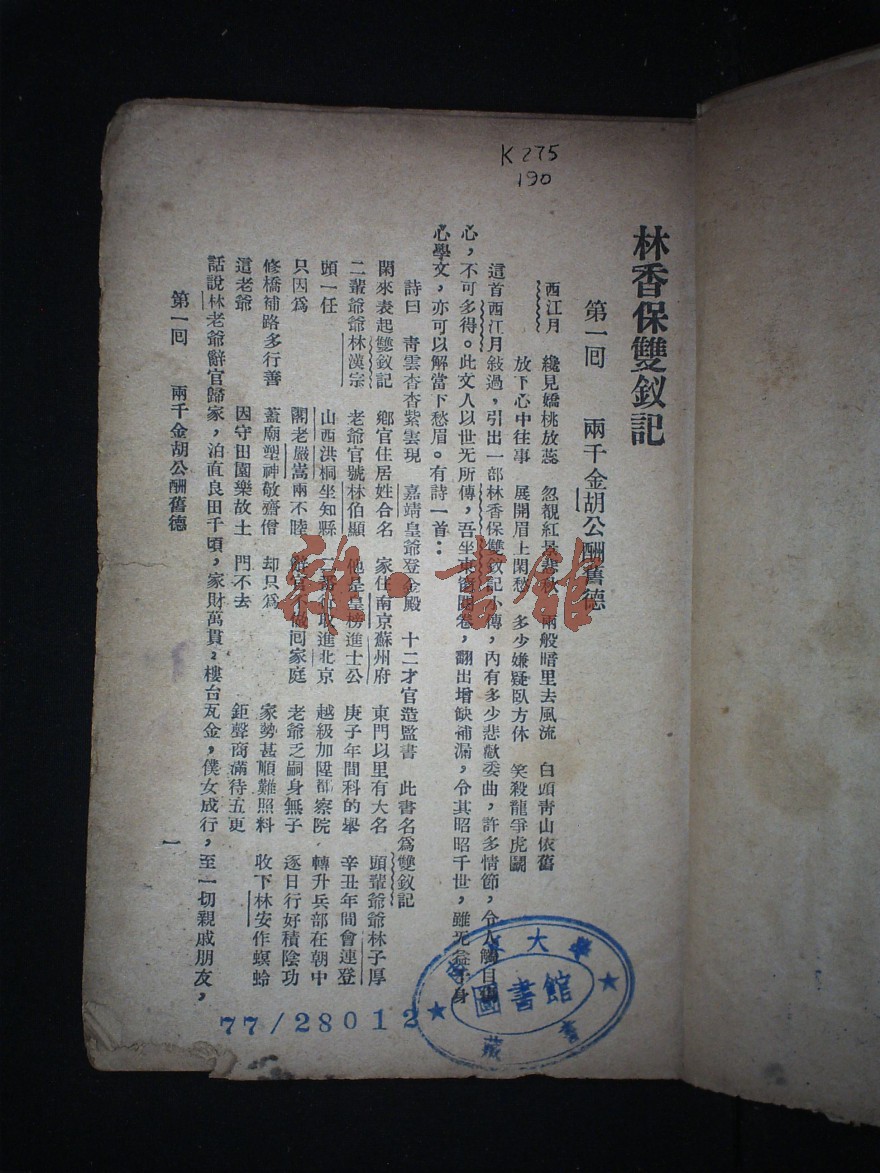 K 275
190
林香保雙釵記
第一囘　兩千金胡公酬舊德
西江月　纔見嬌桃放蕊　忽覩紅景　秋　兩般暗里去風流　白頭青山依舊
放下心中往事　展開眉上閑愁　多少嫌疑臥方休　笑殺龍爭虎鬭
這首西江月敍過，引出一部林香保雙釵記小傳，內有多少悲歡委曲，許多情節，令人觸目
心，不可多得。此文人以世无所傳，吾坐東窗閱卷，翻出增缺補漏，令其昭昭千世，雖无益于身
心學文，亦可以解當下愁眉。有詩一首：
詩曰　青雲杳杳紫雲現　嘉靖皇爺登金殿　十二才官造監書　此書名爲雙釵記
閑來表起雙釵記　鄉官住居姓合名　家住南京蘇州府　東門以里有大名　頭輩爺爺林子厚
二輩爺爺林漢宗　老爺官號林伯顯　他是皇榜進士公　庚子年間科的舉　辛丑年間會連登
頭一任　山西洪桐坐知縣　二番行取進北京　越級加陞都察院　轉升兵部在朝中
只因爲　閣老嚴嵩兩不睦　辭官不做囘家庭　老爺乏嗣身無子　逐日行好積陰功
修橋補路多行善　蓋廟塑神敬齋僧　却只爲　家勢甚順難照料　收下林安作螟蛉
這老爺　因守田園樂故土　門不去　鉅聲商滿待五更
話說林老爺辭官歸家，泊直良田千頃，家財萬貫，樓台瓦金，僕女成行，至一切親戚朋友，
第一囘　兩千金胡公酬舊德
一
雜·書館
大學
圖書館
藏書
77/28012